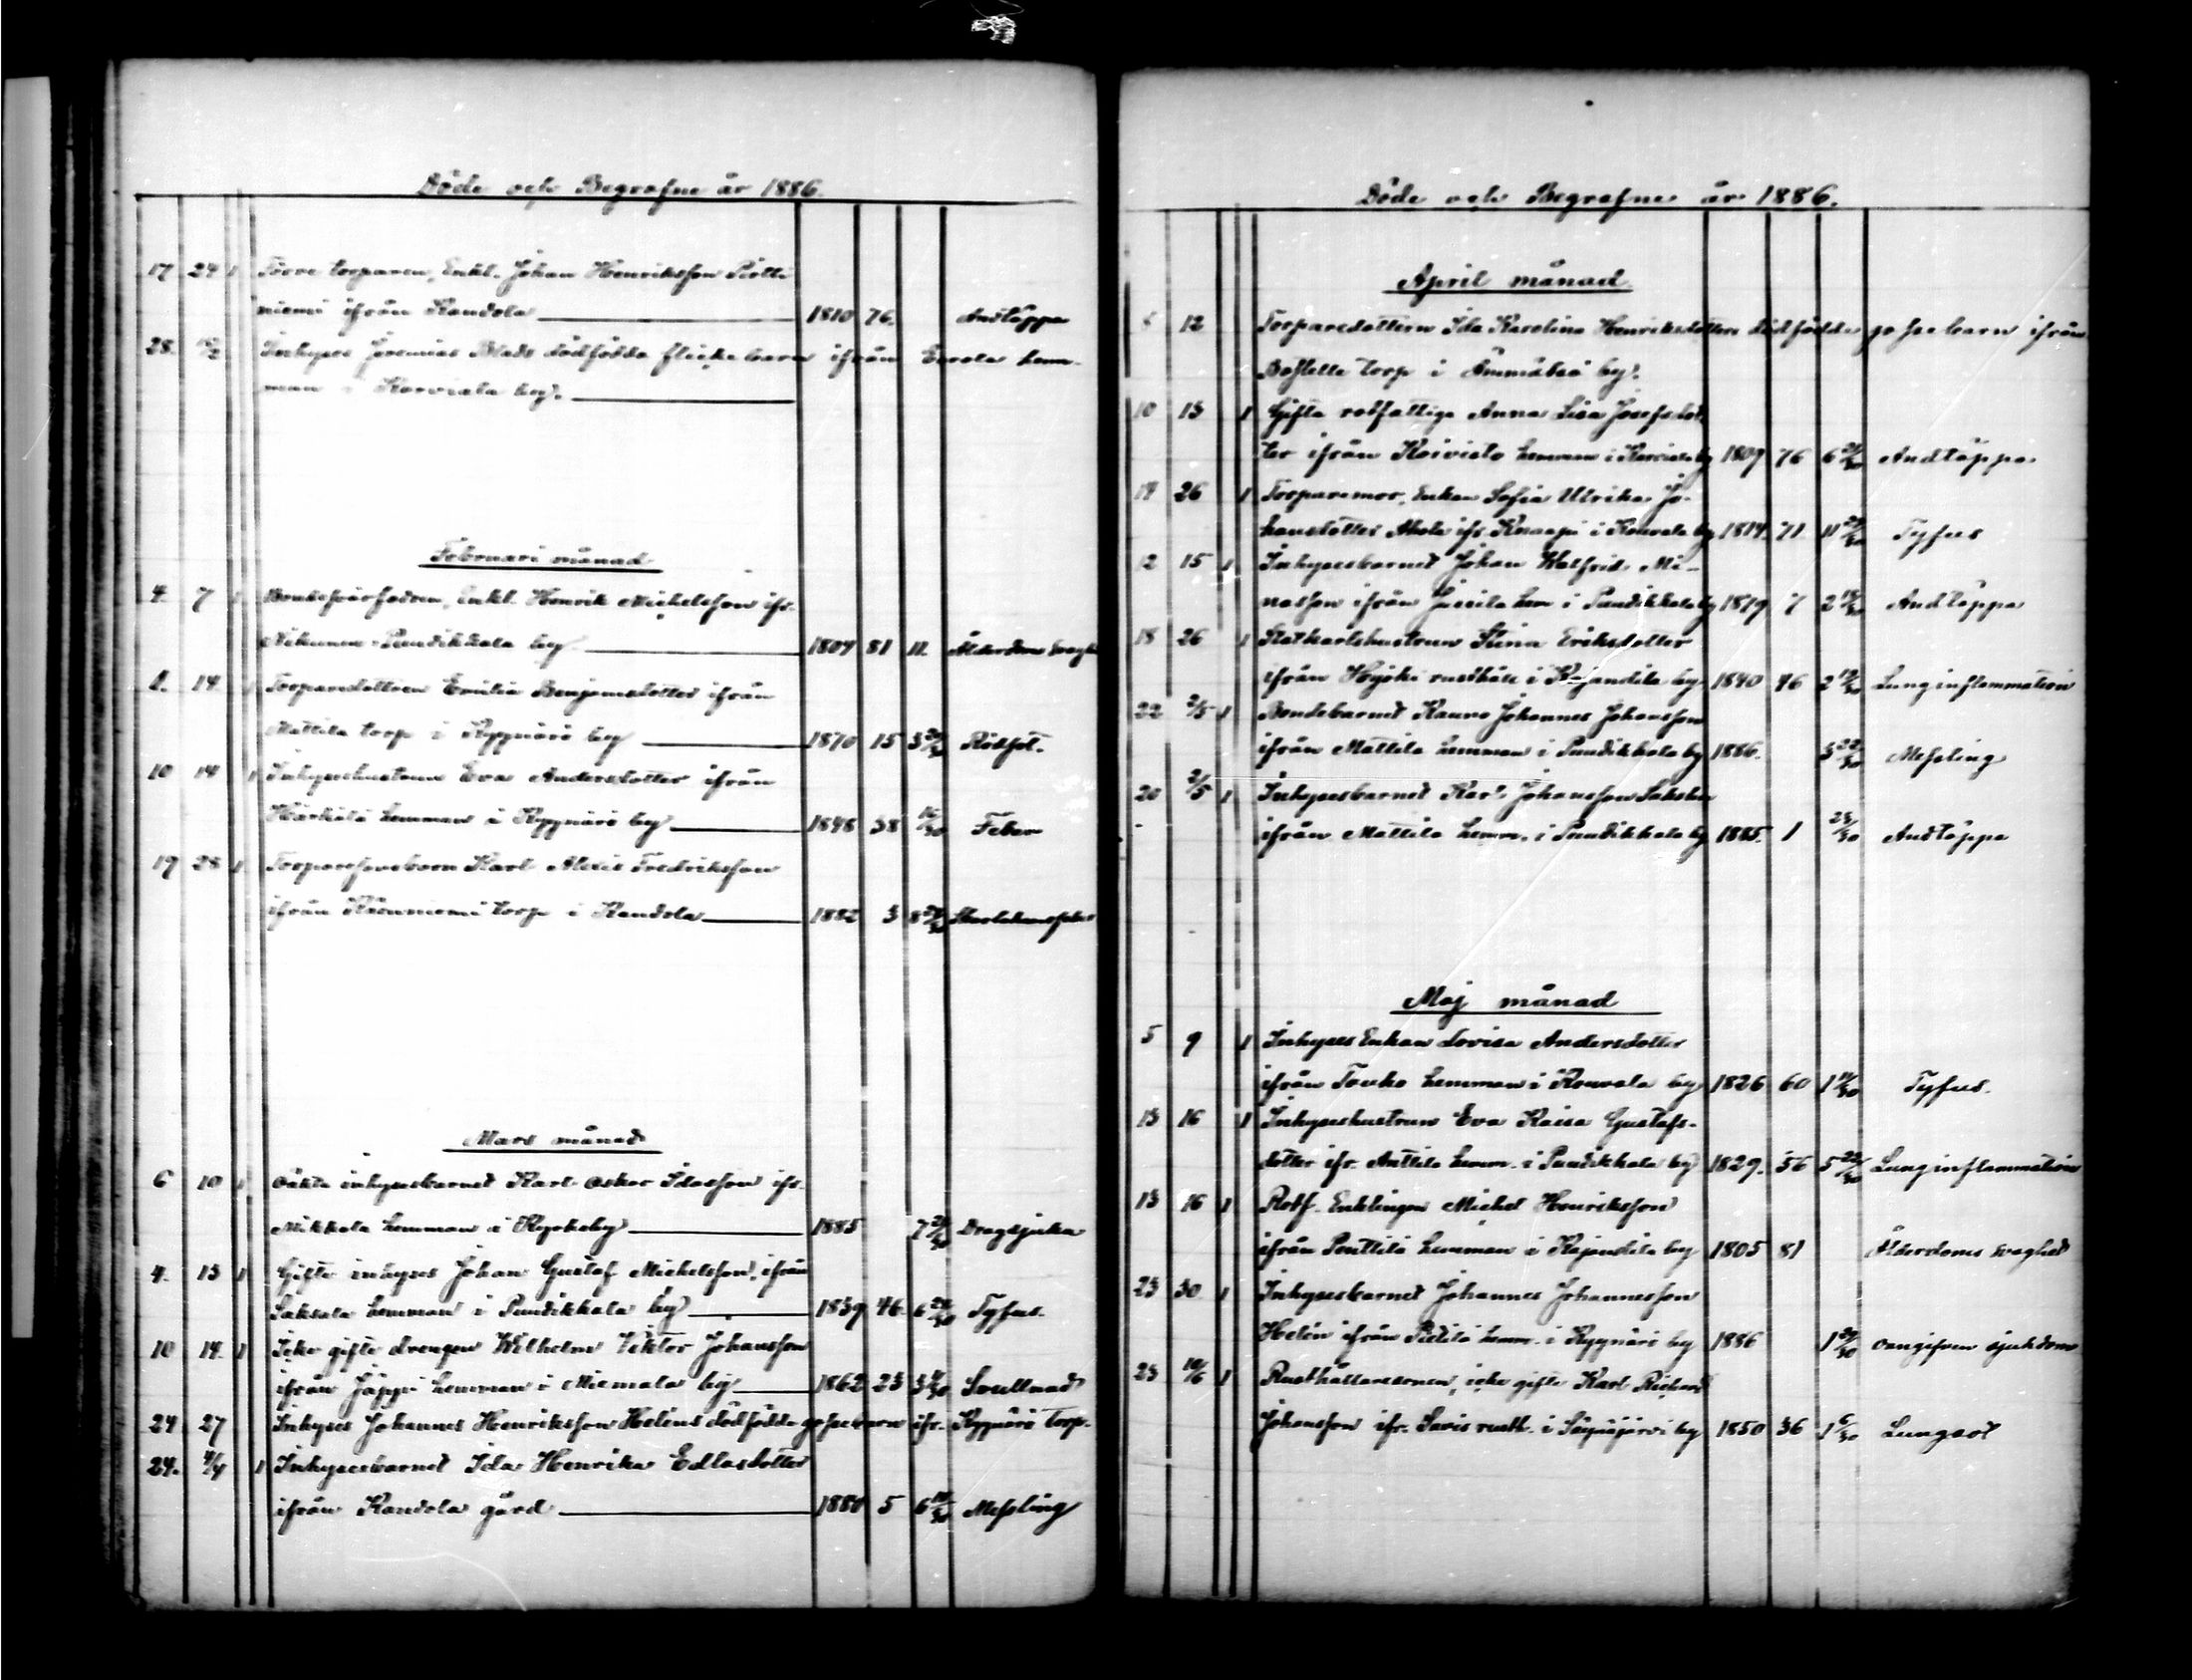 Döde och Begrafne år 1886.
17 24 1 Förre torparen, Enkl. Johan Henriksson
niemi ifrån Kandola 1810 76. Andtäppa
28. Inhyses Jeremias Blads dödfödda flickebarn ifrån Eerola hem-
man i Korviala by.
Februari månad
4. 7 1 Enkl. Henrik Michelsson ifr.
Pundikkala by 1804 81 11. Ålderdoms svaghet
1. 14. 1 Torparedottren Emilia Benjamsdotter ifrån
Mattila torp i Kypnärö by 1870 15 3 Rödsot.
10 14 1 Inhyseshustrun Eva Andersdotter ifrån
Härkälä hemman i Kypnärö by 1848 38 16/30 Feber
19 28 1 Karl Alexis Fredriksson
ifrån torp i Kandola 1882 3 8 Skarlakansfeber
Mars månad
6 10 1 Oäkta inhysesbarnet Karl Oskar Idasson ifr.
Mikkola hemman i 1885 7 Dragsjuka
4. 13 1 Gifte inhyses Johan Gustaf Michelsson, ifrån
Saksala hemman i Pundikkala by 1839 46. 6 Tyfus.
10 14. 1 Icke gifte drengen Wilhelm Viktor Johansson
ifrån Jäppi hemman i Niemala by 1862 23 3 Svullnad
24 27 Inhyses Johannes Henriksson Heléns dödfödda gossebarn ifr. Kypnärö torp.
24. 4/4 1 Inhysesbarnet Ida Henrika Edlasdotter
ifrån Kandola gård 1880 5 6 Messling
Döde och Begrafne år 1886.
April månad
5 12 Torparedottern Ida Karolina Henriksdotters dödfödda gossebarn ifrån
torp i Ämmäbsä by.
10 13 1 Gifta rotfattiga Anna Lisa Josefsdot-
ter ifrån Koivisto hemman i Korviala by 1809 76 6 Andtäppa
14 26 1 Torparemor, Enkan Sofia Ulrika Jo-
hansdotter Ahola ifr. Knaapi i Kouvola by 1814. 71 11 Tyfus
12 15 1 Inhysesbarnet Johan Walfrid Mi-
nasson ifrån Jussila hem. i Pundikkala by 1879 7 2 Andtäppa
18 26 1 Statkarlshustrun Stina Eriksdotter
ifrån Hyöki rusthåll i Kajandila by 1840 46 2 Lunginflammation
22 2/5 1 Bondebarnet Kauno Johannes Johansson
ifrån Mattila hemman i Pundikkala by 1886. 3 Messling
20 2/5 1 Inhysesbarnet Karl Johansson
ifrån Mattila hemm. i Pundikkala by 1885. 1 Andtäppa
Maj månad
5 9 1 Inhyses Enkan Lovisa Andersdotter
ifrån Touko hemman i Kouvola by 1826 60 1 Tyfus.
13 16 1 Inhyseshustrun Eva Kaisa Gustafs-
dotter ifr. Anttila hemm. i Pundikkala by 1829. 56 5 Lunginflammation
13 16 1 Rotf. Enklingen Michel Henriksson
ifrån Penttilä hemman i Kajandila by 1805 81 Ålderdoms svaghet
23 30 1 Inhysesbarnet Johannes Johannesson
Helén ifrån hemm. i Kypnärö by 1886 1 oangifven sjukdom
23 10/6 1 Rusthållaresonen, icke gifte Karl Richard
Johansson ifr. Saris rusth. i Säynäjärvi by 1850 36 1 6/30 Lungsot